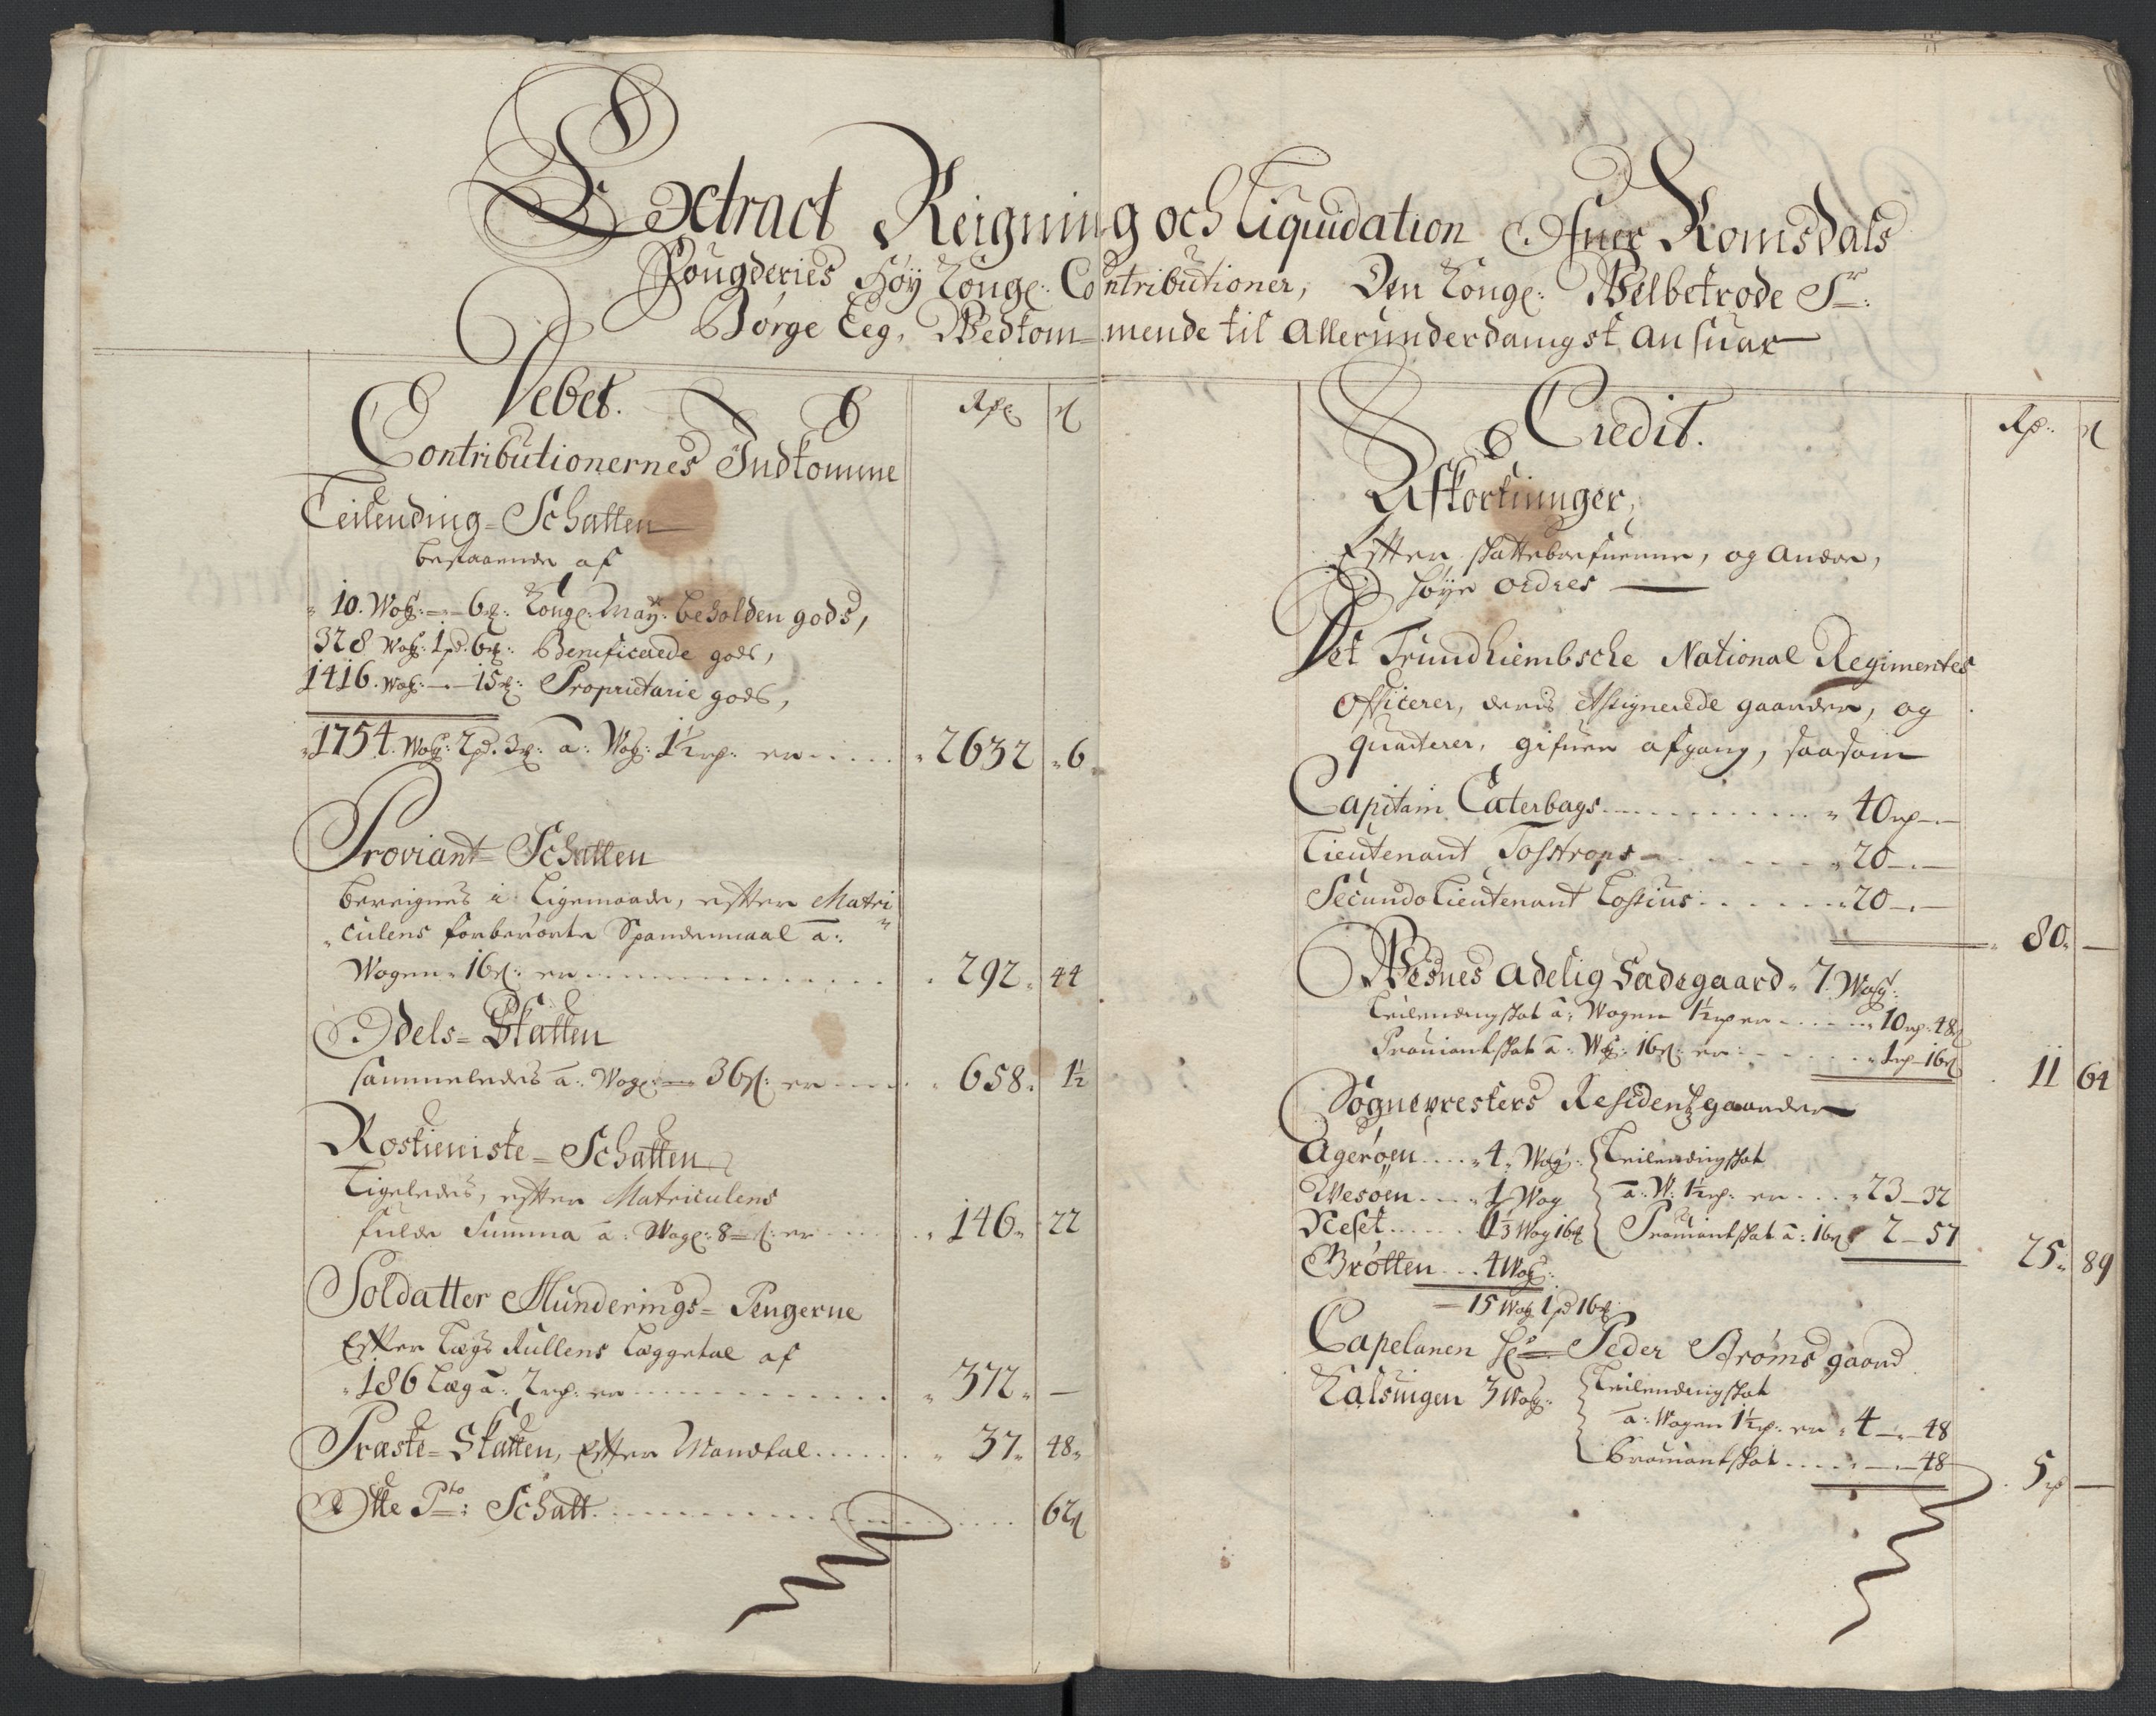 Extract Reigning och Liquidation Ofuer Romsdals
Fougderies Høy Kongl: Contributioner, Den Kongl: Welbetrode Sr:
Børge Eeg, Vedkommende til Allerunderdanigst Ansuar
Debet.
Rdl: ß
Contributionernes Indkomme
Leilending-Schatten
bestaaende af
10. Wog: - 6 mk: Kongl: May: beholden gods,
328 Wog: 1 pd. 6 mk: Beneficerede gods,
1416. Wog: - 15 mk: Proprietarie gods,
1754. Wog: 2 pd. 3 mk: a: Wog: 1½ rd: er ..... 2632 6
Proviant-Schatten
bereignes i Ligemaade, efter Matri
culens forberørte Spandemaal a:
Wogen 16 ß: er ..... 292 44
Odels-Skatten
sammeledes a: Wog: 36 ß: er ..... 658. 1½
Rostieniste-Schatten
Ligeledes, efter Matriculens
fulde Summa a: Wog: 8 ß: er ..... 146 22
Soldatter Munderings-Pengerne
Efter Lægs Rullens Læggetal af
186 Læg a: 2 rd: er ..... 372 -
Præste-Skatten, Efter Mandtal ..... 37 48
Otte Pto: Schatt ..... 62 ß
Credit.
Rd: ß
Afkortninger,
Efter skattebrefuenne, og Andre,
høye ordres
Det Trundhiembsche National Regimentes
Officerer, deris Assignerede gaarder, og
quarterer, gifuen afgang, saasom
Capitain Caterbags ..... 40 rd -
Lieutenant Tostrops ..... 20 -
Secundo Lieutenant Lossius ..... 20 -
80 -
Wesnes Adelig Sædegaard 7 Wog:
Leilendingskat a: Wogen 1½ rd er ..... 10 rd 48 ß
Prouiantskat a: Wog: 16 ß: er ..... 1 rd 16 ß
11 64
Sognepresters Residentz gaarder
Agerøen .... 4 Wog: Leilendingskat
Wesøen .... 1 Wog a: W: 1½ rd: er ... 23 - 32
Neset ..... Wog 16 mk Prouiantskat a: 16 ß 2 - 57
25 89
Grøtten ... 4 Wog:
15 Wog 1 pd 16 mk
Capelanen Hr Peder Strøms gaard
Kalsuigen 3 Wog: Leilendingskat
a: Wogen 1½ rd: er 4 - 48
Prouiantskat ..... - 48
5 rd -